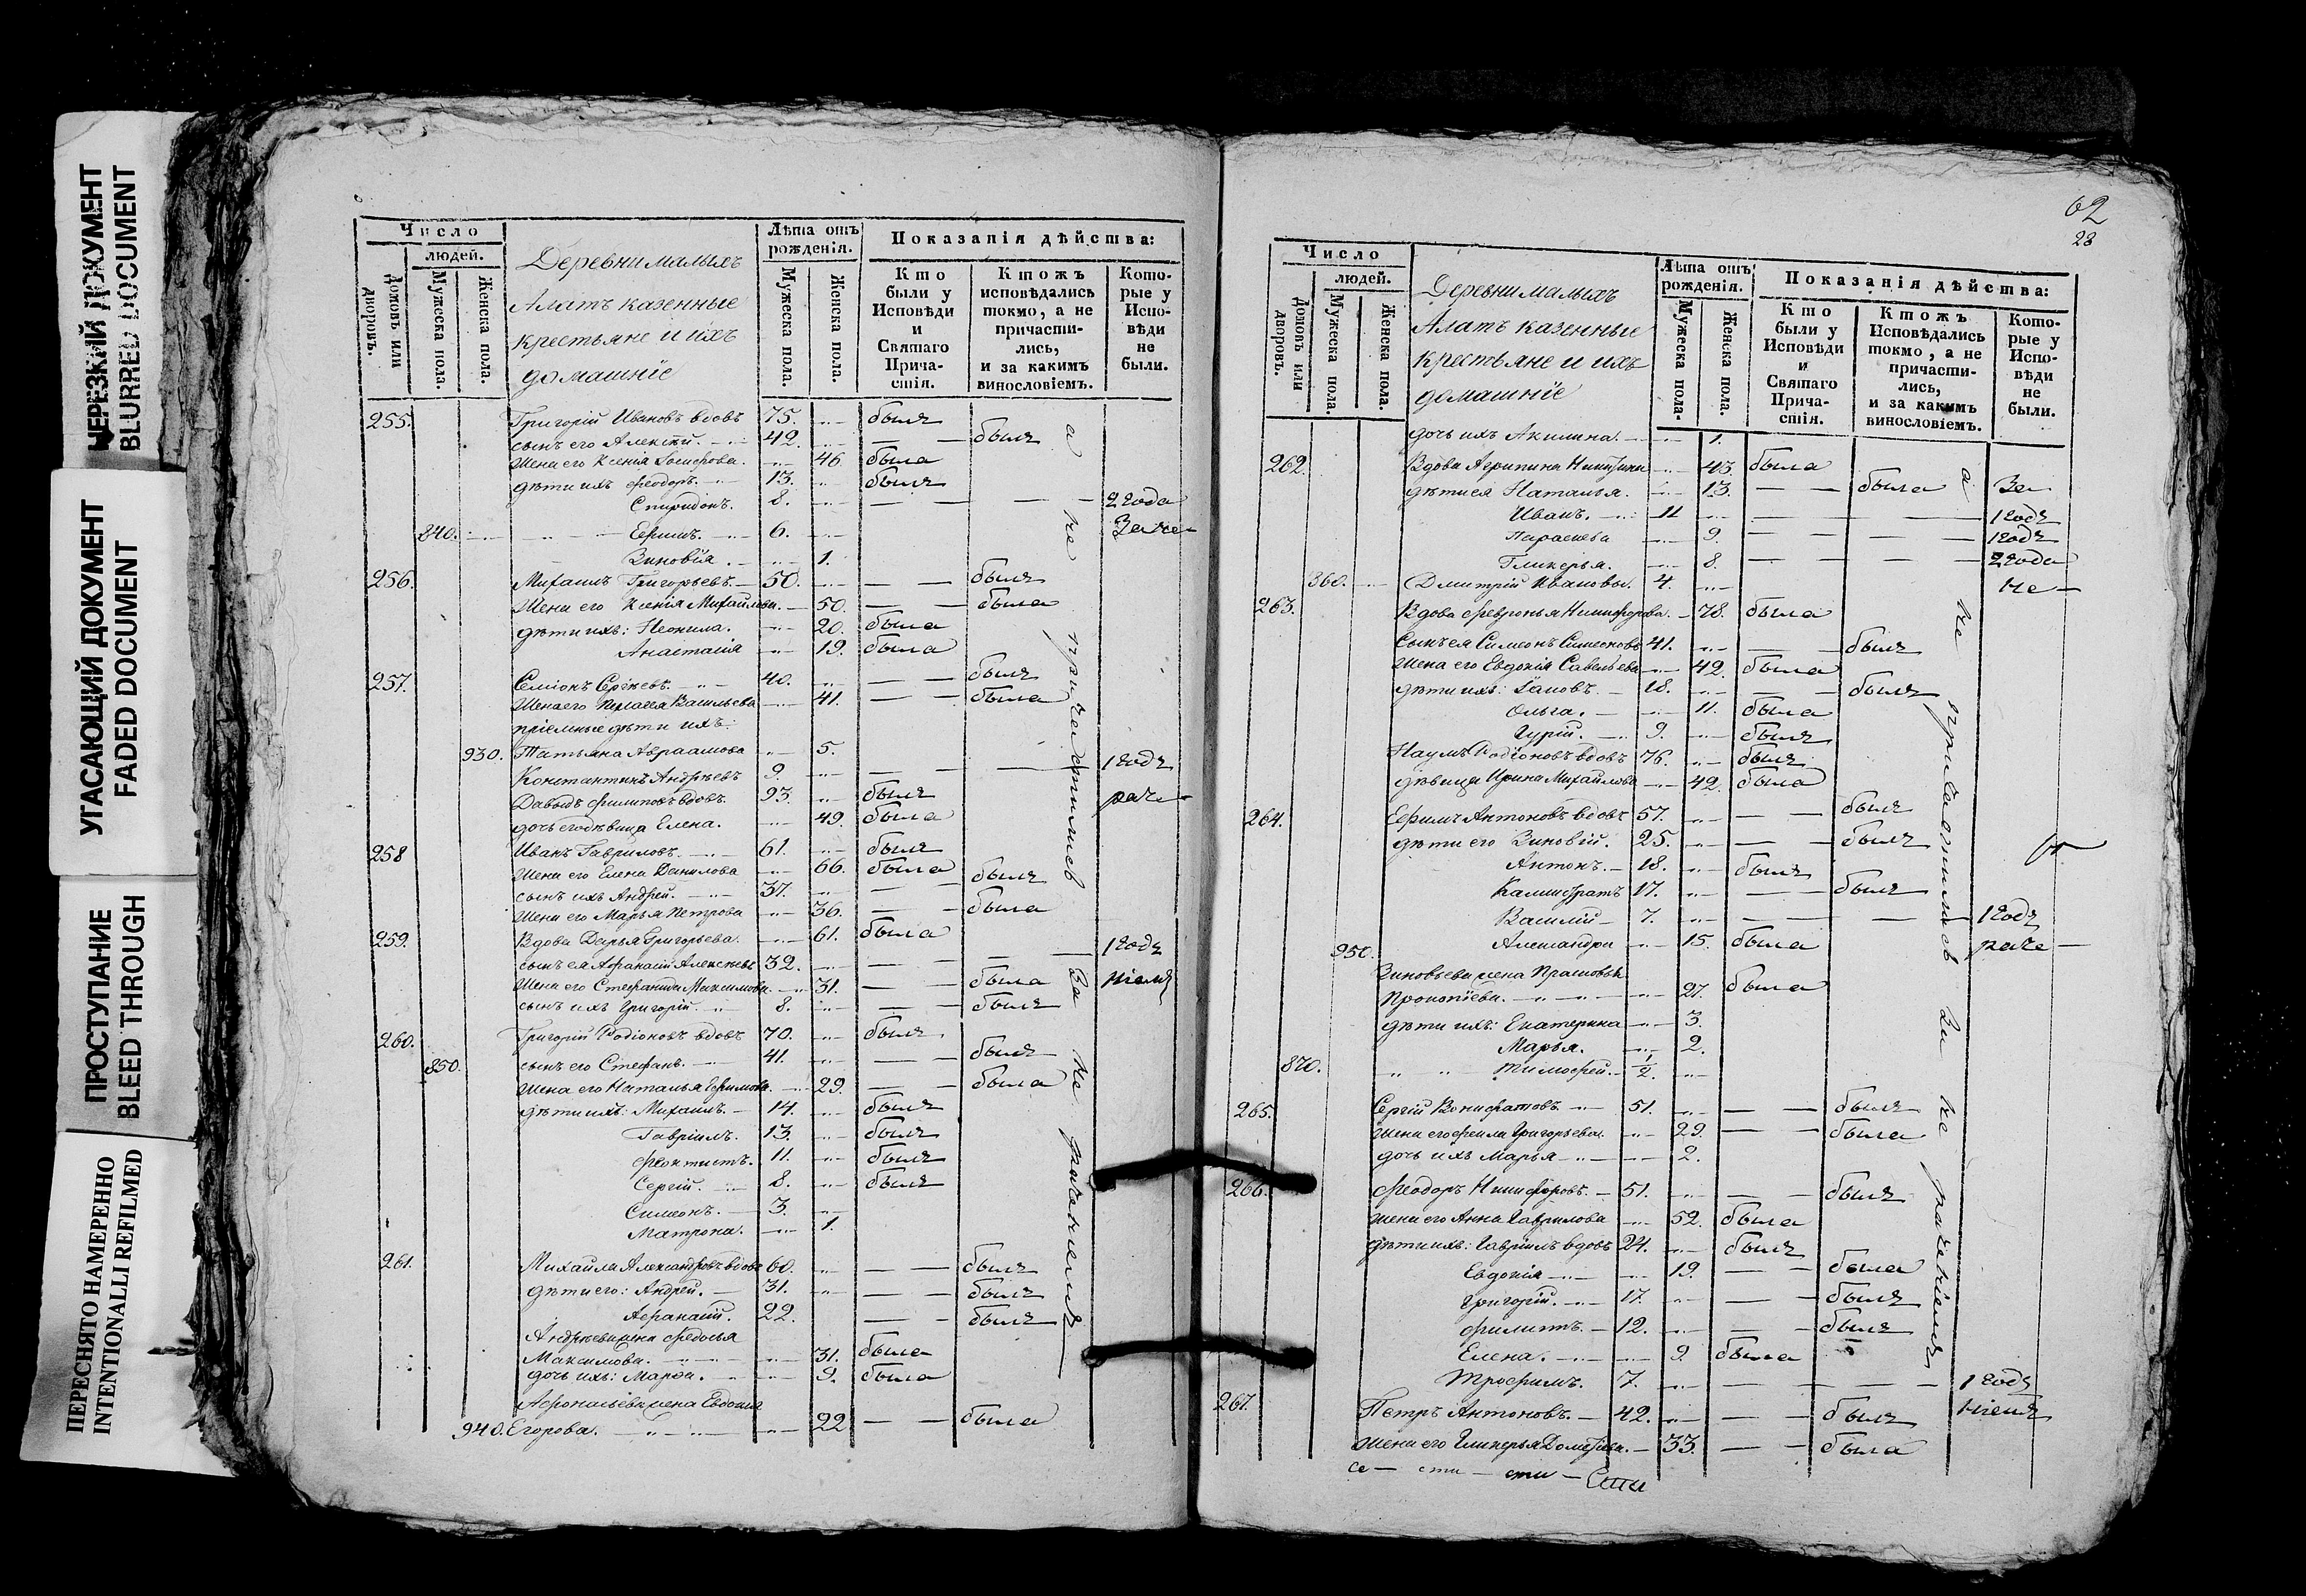 НЕРЕЗКИЙ ДОКУМЕНТ
BLURRED DOCUMENT
УГАСАЮЩИЙ ДОКУМЕНТ
FADED DOCUMENT
ПРОСТУПАНИЕ
BLEED THROUGH
ПЕРЕСНЯТО НАМЕРЕННО
INTENTIONALLI REFILMED
Число
людей.
Домовъ или дворовъ.
Мужеска пола.
Женска пола.
Деревни малыхъ
Алатъ казенные
крестьяне и ихъ
домашніе
Лѣта отъ рожденія.
Мужеска пола.
Женска пола.
Показанія дѣйства:
Кто были у Исповѣди и Святаго Причастія.
Ктожъ исповѣдались токмо, а не причастились, и за какимъ винословіемъ.
Которые у Исповѣди не были.
255. Григорій Ивановъ вдовъ 75. былъ
сынъ его Алексѣй. 42. былъ
жена его Ксенія 46. была
дѣти ихъ Феодоръ. 13. былъ
Спиридонъ. 8. 2 года
840. Ефимъ. 6. За не
Зиновія. 1.
256. Михаилъ Григорьевъ. 50. былъ
Жена его Ксенія Михайлова. 50. была
дѣти ихъ: Неонила. 20. была
Анастасія 19. была
257. Семіонъ Сергѣевъ. 40. былъ
Жена его Пелагея Васильева 41. была
пріемные дѣти ихъ:
930. Татьяна Авраамова 5.
Константинъ Андрѣевъ 9. 1 годъ
Давыдъ Филиповъ вдовъ. 93. былъ раче
дочь его дѣвица Елена. 49. была
258 Иванъ Гавриловъ. 61. былъ
Жена его Елена Данилова 66. была
сынъ ихъ Андрей. 37. былъ
Жена его Марья Петрова 36. была
259. Вдова Дарья Григорьева. 61. была
сынъ ея Афанасій Алексѣевъ 32. 1 годъ
Жена его Стефанида Максимова. 31. была ніемъ
сынъ ихъ Григорій. 8. былъ
260. Григорій Родіоновъ вдовъ 70. былъ
850. сынъ его Стефанъ. 41. былъ
Жена его Наталья Ефимова. 29. была
дѣти ихъ: Михаилъ. 14. былъ
Гавріилъ. 13. былъ
Феоктистъ. 11. былъ
Сергій. 8. былъ
Симеонъ. 3.
Матрона. 1.
261. Михайла Александровъ вдовъ 60. былъ
дѣти его: Андрей. 31. былъ
Афанасій. 22. былъ
Андрѣева жена Федосья
Максимова. 31. была
дочь ихъ: Марфа. 9. была
Афонасіева жена Евдокія
940. Егорова. 22 была
а не причастились За не раченіемъ
62
28
Число
людей.
Домовъ или дворовъ.
Мужеска пола.
Женска пола.
Деревни малыхъ
Алатъ казенные
крестьяне и ихъ
домашніе
Лѣта отъ рожденія.
Мужеска пола.
Женска пола.
Показанія дѣйства:
Кто были у Исповѣди и Святаго Причастія.
Ктожъ Исповѣдались токмо, а не причастились, и за какимъ винословіемъ.
Которые у Исповѣди не были.
дочь ихъ Акилина. 1.
262. Вдова Агрипина 43. была
дѣти ея Наталья. 13. была За
Иванъ. 11 1 годъ
Параскева 9. 1 годъ
Гликерья. 8. 2 года
860. Дмитрій Ивановы. 4. не
263. Вдова Февронья Никифорова. 78. была
Сынъ ея Симеонъ Симеоновъ 41. былъ
Жена его Евдокія Савельева 42. была
дѣти ихъ: Іаковъ. 18. былъ
Ольга. 11. была
Гурій. 9. былъ
Наумъ Родіоновъ вдовъ 76. былъ
дѣвица Ирина Михайлова 42. была
264. Ефимъ Антоновъ вдовъ 57. былъ
дѣти его Зиновій. 25. былъ
Антонъ. 18. былъ
Калистратъ 17. былъ
Василій 7. 1 годъ
950. Александра 15. была раче
Зиновьева жена Прасковья
Прокопіева. 27. была
дѣти ихъ: Екатерина 3.
Марья. 2.
870. Тимофей. 1/2.
265. Сергій Вонифатовъ. 51. былъ
Жена его Григорьева. 29. была
дочь ихъ Марья 2.
266. Феодоръ Никифоровъ. 51. былъ
жена его Анна Гаврилова 52. была
дѣти ихъ: Гавріилъ вдовъ 24. былъ
Евдокія 19. была
Григорій. 17. былъ
Филиппъ. 12. былъ
Елена. 9. была
Трофимъ. 7. 1 годъ
267. Петръ Антоновъ. 42. былъ ніемъ
жена его Гликерья 33. была
а не причастились За не раченіемъ